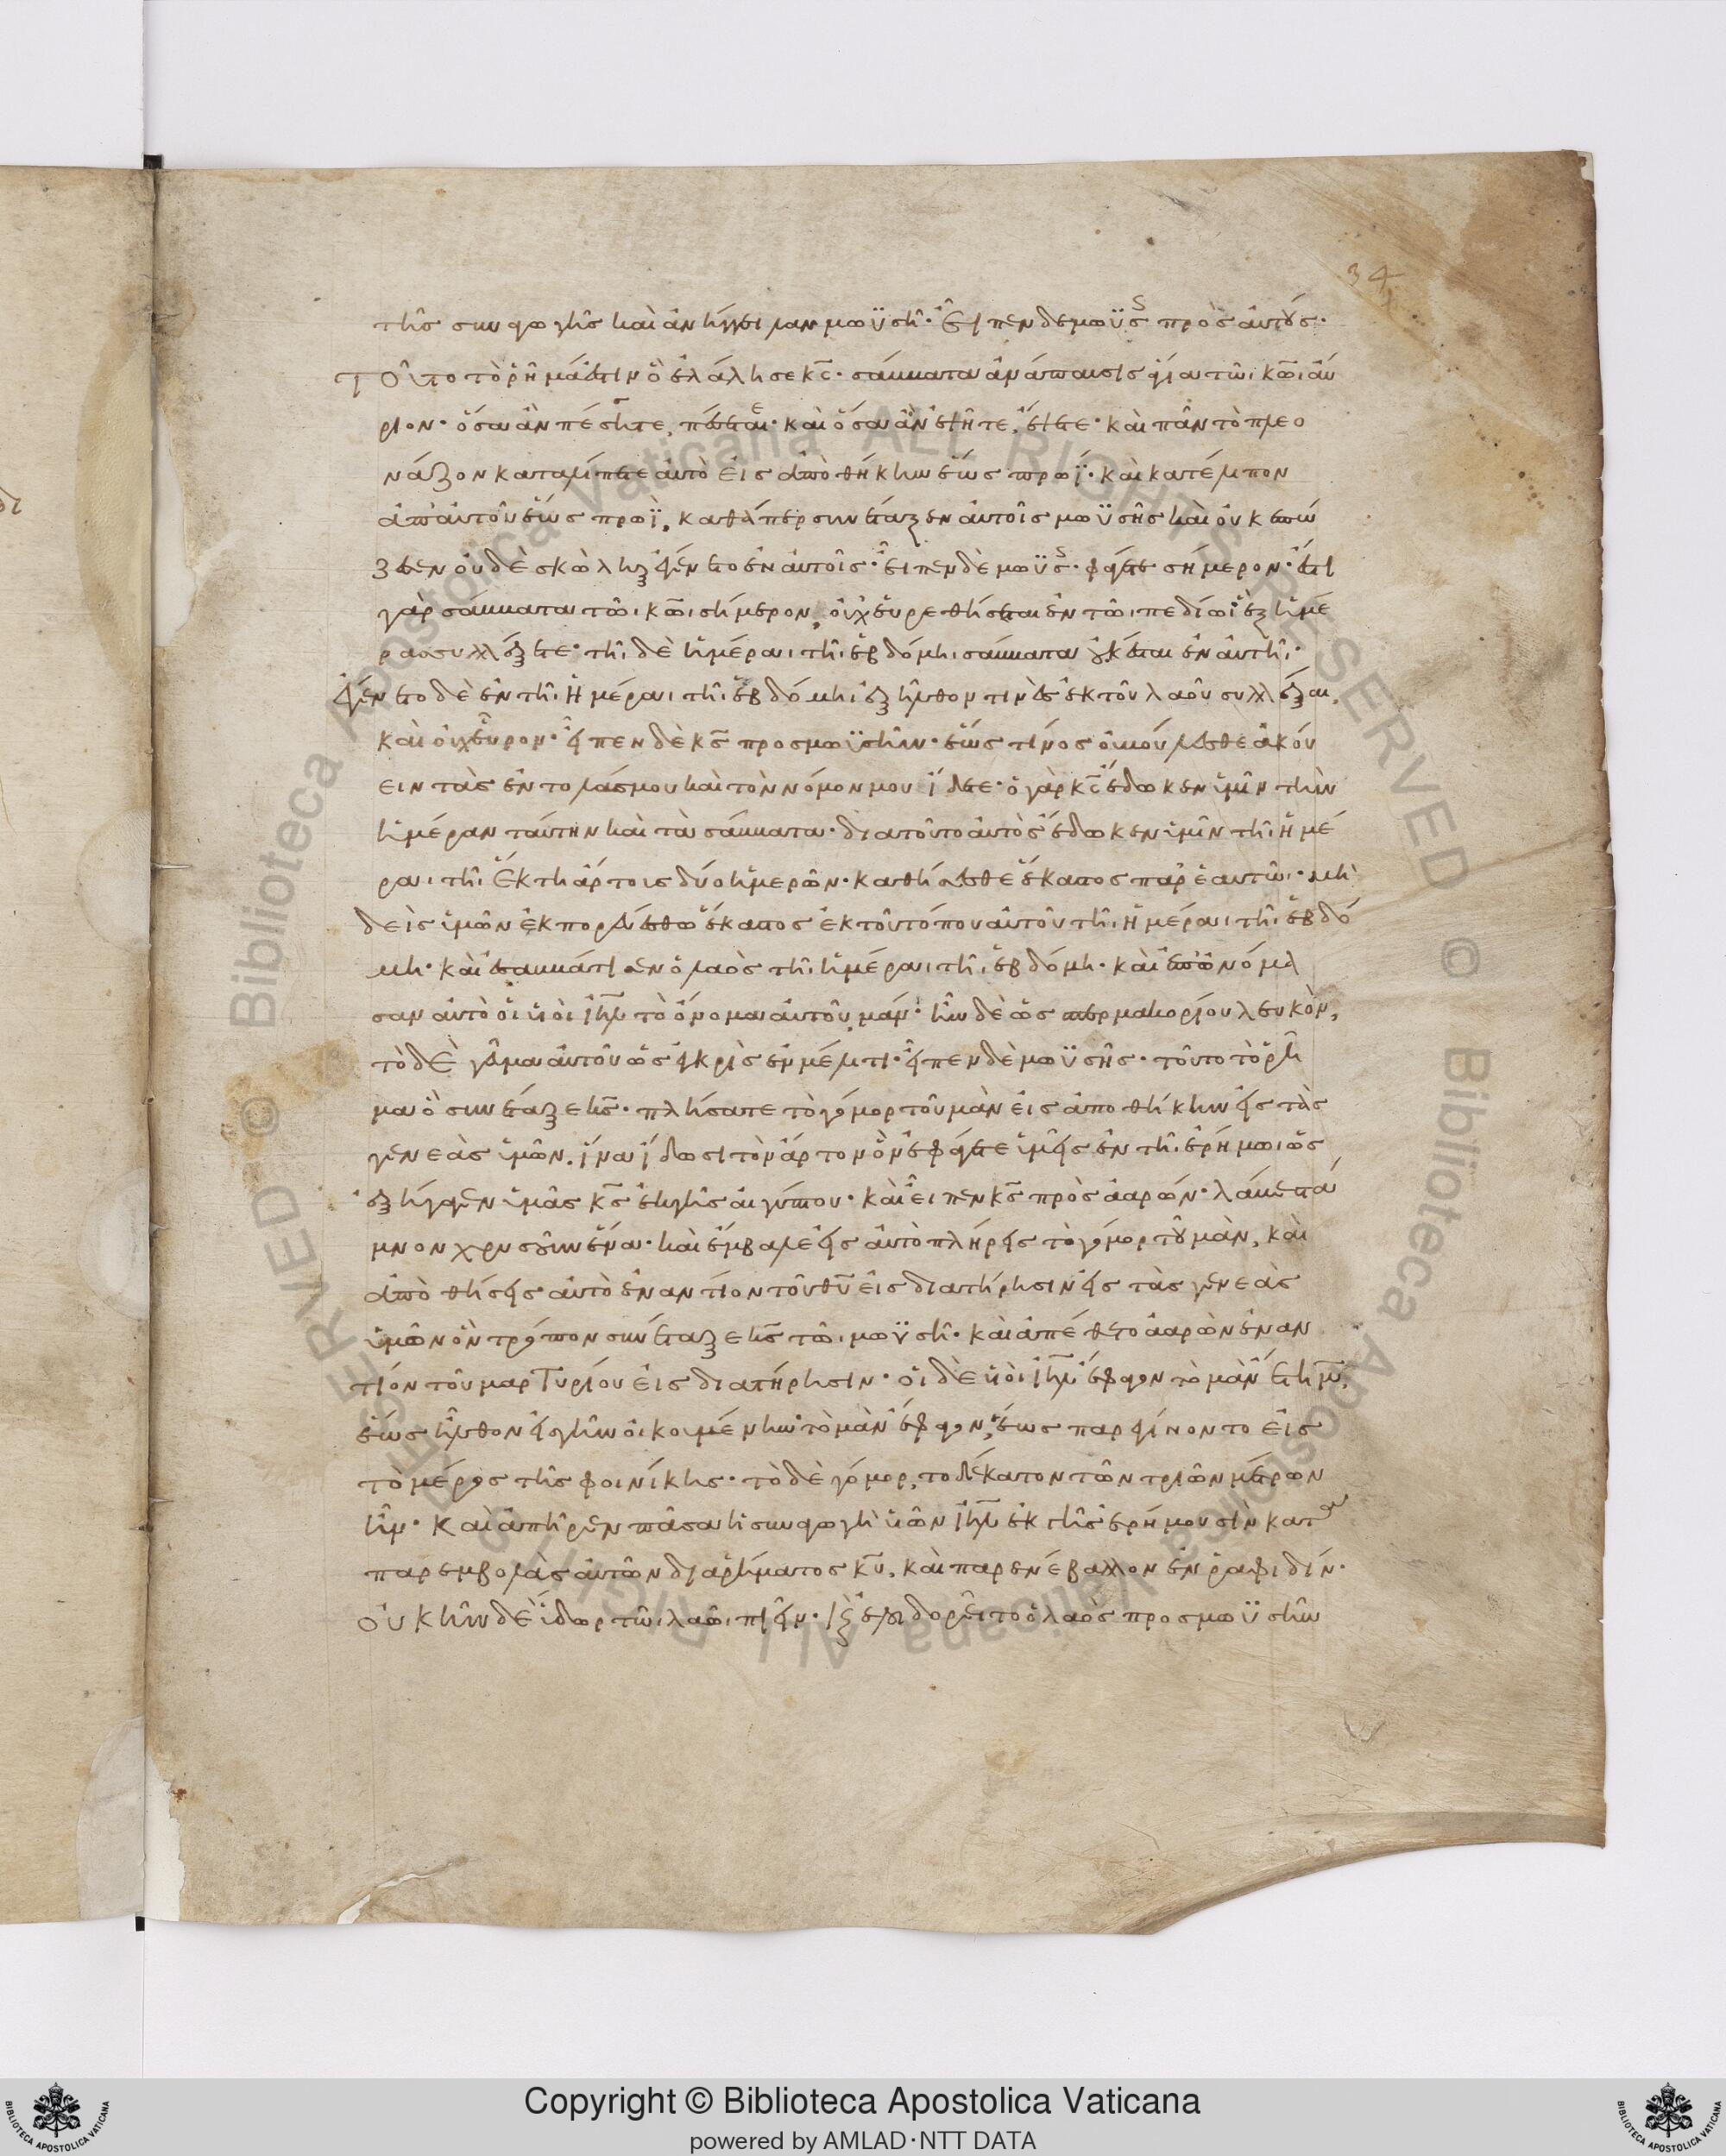 34
τῆς συναγωγῆς καὶ ἀνήγγειλαν μωϋσῆ· Εἶπεν δὲ μωϋς πρὸς αὐτούς·
Τοῦτο τὸ ῥῆμά ἐστιν ὃ ἐλάλησε κς· σάββατα ἀνάπαυσις ἁγία τῶι κῶι αὔ
ριον· ὅσα ἂν πέσσητε, πέσσεται· καὶ ὅσα ἂν ἕψητε, ἕψετε· καὶ πᾶν τὸ πλεο
νάζον καταλίπετε αὐτὸ εἰς ἀποθήκην ἕως πρωΐ· καὶ κατέλιπον
ἀπ' αὐτοῦ ἕως πρωΐ, καθάπερ συνέταξεν αὐτοῖς μωϋσῆς καὶ οὐκ ἐπώ
ζεσεν οὐδὲ σκώληξ ἐγένετο ἐν αὐτοῖς· εἶπεν δὲ μωϋς· φάγετε σήμερον· ἔστι
γὰρ σάββατα τῶι κῶι σήμερον, οὐχ εὑρεθήσεται ἐν τῶι πεδίωι ἓξ ἡμέ
ρας συλλέξετε· τῆι δὲ ἡμέραι τῆι ἑβδόμηι σάββατα οὐκ ἔσται ἐν αὐτῆι·
Ἐγένετο δὲ ἐν τῆι ἡμέραι τῆι ἑβδόμηι ἐξῆλθον τινὲς ἐκ τοῦ λαοῦ συλλέξαι,
καὶ οὐχ εὗρον· εἶπεν δὲ κς προς μωϋσῆν· ἕως τίνος οὐ βούλεσθε ἀκού
ειν τὰς ἐντολάς μου καὶ τὸν νόμον μου ἴδετε· ὁ γὰρ κς ἔδωκεν ὑμῖν τὴν
ἡμέραν ταύτην καὶ τὰ σάββατα· διατοῦτο αὐτὸς ἔδωκεν ὑμῖν τῆι ἡμέ
ραι τῆι ἕκτη ἄρτους δύο ἡμερῶν· καθήσεσθε ἕκαστος παρ' ἑαυτῶι· μη
δεὶς ὑμῶν ἐκπορευέσθω ἕκαστος ἐκ τοῦ τόπου αὐτοῦ τῆι ἡμέραι τῆι ἑβδό
μη· καὶ ἐσαββάτισεν ὁ λαὸς τῆι ἡμέραι τῆι ἑβδόμη· καὶ ἐπωνόμα
σαν αὐτὸ οἱ υἱοὶ ιηλ τὸ ὄνομα αὐτοῦ, μάν· ἦν δὲ ὡς σπέρμα κορίου λευκὸν,
τὸ δὲ γεῦμα αὐτοῦ ὡς ἐγκρὶς ἐν μέλιτι· εἶπεν δὲ μωϋσῆς· τοῦτο τὸ ῥῆ
μα ὃ συνέταξε κς· πλήσατε τὸ γόμορ τοῦ μὰν εἰς ἀποθήκην εἰς τὰς
γενεὰς ὑμῶν, ἵνα ἴδωσι τὸν ἄρτον ὃν ἐφάγετε ὑμεῖς ἐν τῆι ἐρήμωι ὡς
ἐξήγαγεν ὑμᾶς κς ἐκ γῆς αἰγύπτου· καὶ εἶπεν κς πρὸς ἀαρών· λάβε στά
μνον χρυσοῦν ἕνα· καὶ ἔμβαλε εἰς αὐτὸ πλήρης τὸ γόμορ τοῦ μὰν, καὶ
ἀποθήσεις αὐτὸ ἐναντίον τοῦ θυ εἰς διατήρησιν εἰς τὰς γενεὰς
ὑμῶν ὃν τρόπον συνέταξε κς τῶι μωϋσῆ· καὶ ἀπέθετο ἀαρὼν ἐναν
τίον τοῦ μαρτυρίου εἰς διατήρησιν· οἱ δὲ υἱοὶ ιηλ ἔφαγον τὸ μὰν ἔτη μ,
ἕως ἦλθον εἰς γῆν οἰκουμένην τὸ μὰν ἔφαγον, ἕως παρεγίνοντο εἰς
τὸ μέρος τῆς φοινίκης· τὸ δὲ γόμορ, το δέκατον τῶν τριῶν μέτρων
ἦν· Καὶ ἀπῆρεν πᾶσα ἡ συναγωγὴ υἱῶν ιηλ ἐκ τῆς ἐρήμου σὶν κατα
παρεμβολὰς αὐτῶν διὰ ῥήματος κυ, καὶ παρενέβαλλον ἐν ῥαφιδίν·
Οὐκ ἦν δὲ ὕδωρ τῶι λαῶι πιεῖν· καὶ ἐλοιδορεῖτο ὁ λαὸς προς μωϋσῆν
Copyright © Biblioteca Apostolica Vaticana
powered by AMLAD·NTT DATA